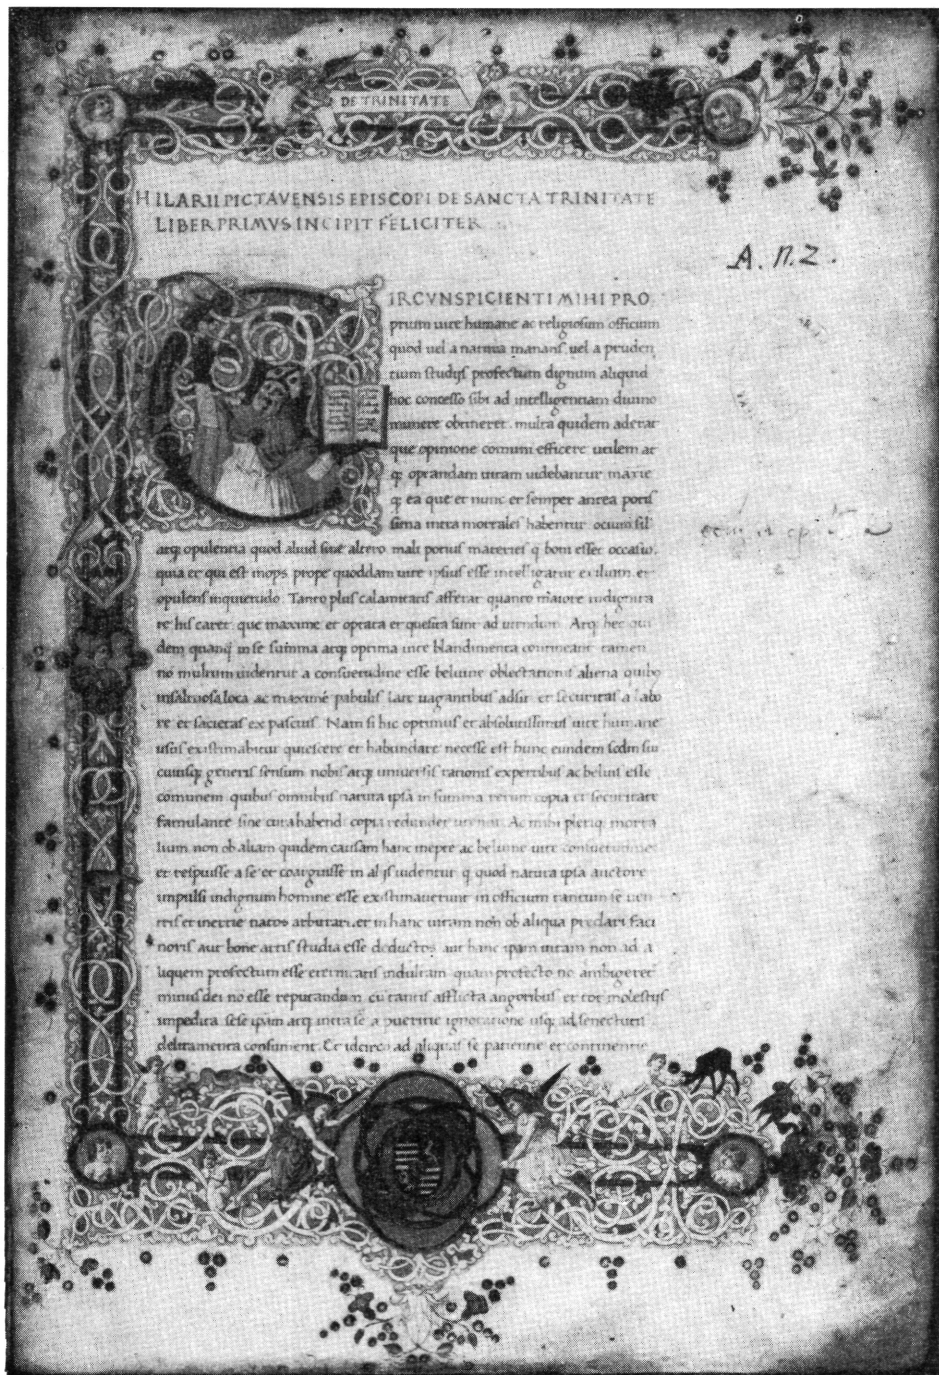 DE TRINITATE
HILARII PICTAVENSIS EPISCOPI DE SANCTA TRINITATE
LIBER PRIMVS INCIPIT FELICITER
A. n. 2.
CIRCVNSPICIENTI MIHI PRO
prium uite humane ac religiosum officium
quod uel a natura manans uel a pruden
tium studijs profectum dignum aliquid
hoc concesso sibi ad intelligentiam diuino
munere obtineret. multa quidem aderat
que opinione comuni efficere utilem at
q; optandam uitam uidebantur maxie
q; ea que et nunc et semper antea potis
sima intra mortales habentur ocium sil
atq; opulentia quod aliud sine altero mali potius materies q boni esset occasio.
quia et qui est inops prope quoddam uite ipsius esse intelligatur exilium et
opulens inquietudo. Tanto plus calamitatis afferat quanto maiore indignita
te his caret. que maxime et optata et quesita sunt ad utendum. Atq; hec qui
dem quanq in se summa atq; optima uite blandimenta contineant tamen
no multum uidentur a consuetudine esse beluine oblectationis aliena quibo
in saltuosa loca ac maxime pabulis lare uagantibus adsit et securitas a labo
re et sacietas ex pascuis. Nam si hic optimus et absolutissimus uite humane
usus existimabitur quiescere et habundare necesse est hunc eundem scdm sui
cuiusq; generis sensum nobis atq; uniuersis rationis expertibus ac beluis esse
comunem quibus omnibus natura ipsa in summa rerum copia et securitate
famulante sine cura habendi copia redundet utendi. Ac mihi pleriq; morta
lium non ob aliam quidem causam hanc inepte ac beluine uite consuetudines
et respuisse a se et coarguisse in alijs uidentur q quod natura ipsa auctore
impulsi indignum homine esse existimauerunt in officium tantum se uen
tris et inertie natos arbitrari. et in hanc uitam non ob aliqua preclari faci
noris aut bone artis studia esse deductos aut hanc ipam uitam non ad a
liquem profectum esse eternitatis indultam quam profecto no ambigeret
minus dei no esse reputandum cu tantis afflicta angoribus et tot molestijs
impedita sese ipam atq; intra se a pueritie ignoratione usq; ad senectutis
deliramenta consument. Et idcirco ad aliquas se patientie et continentie